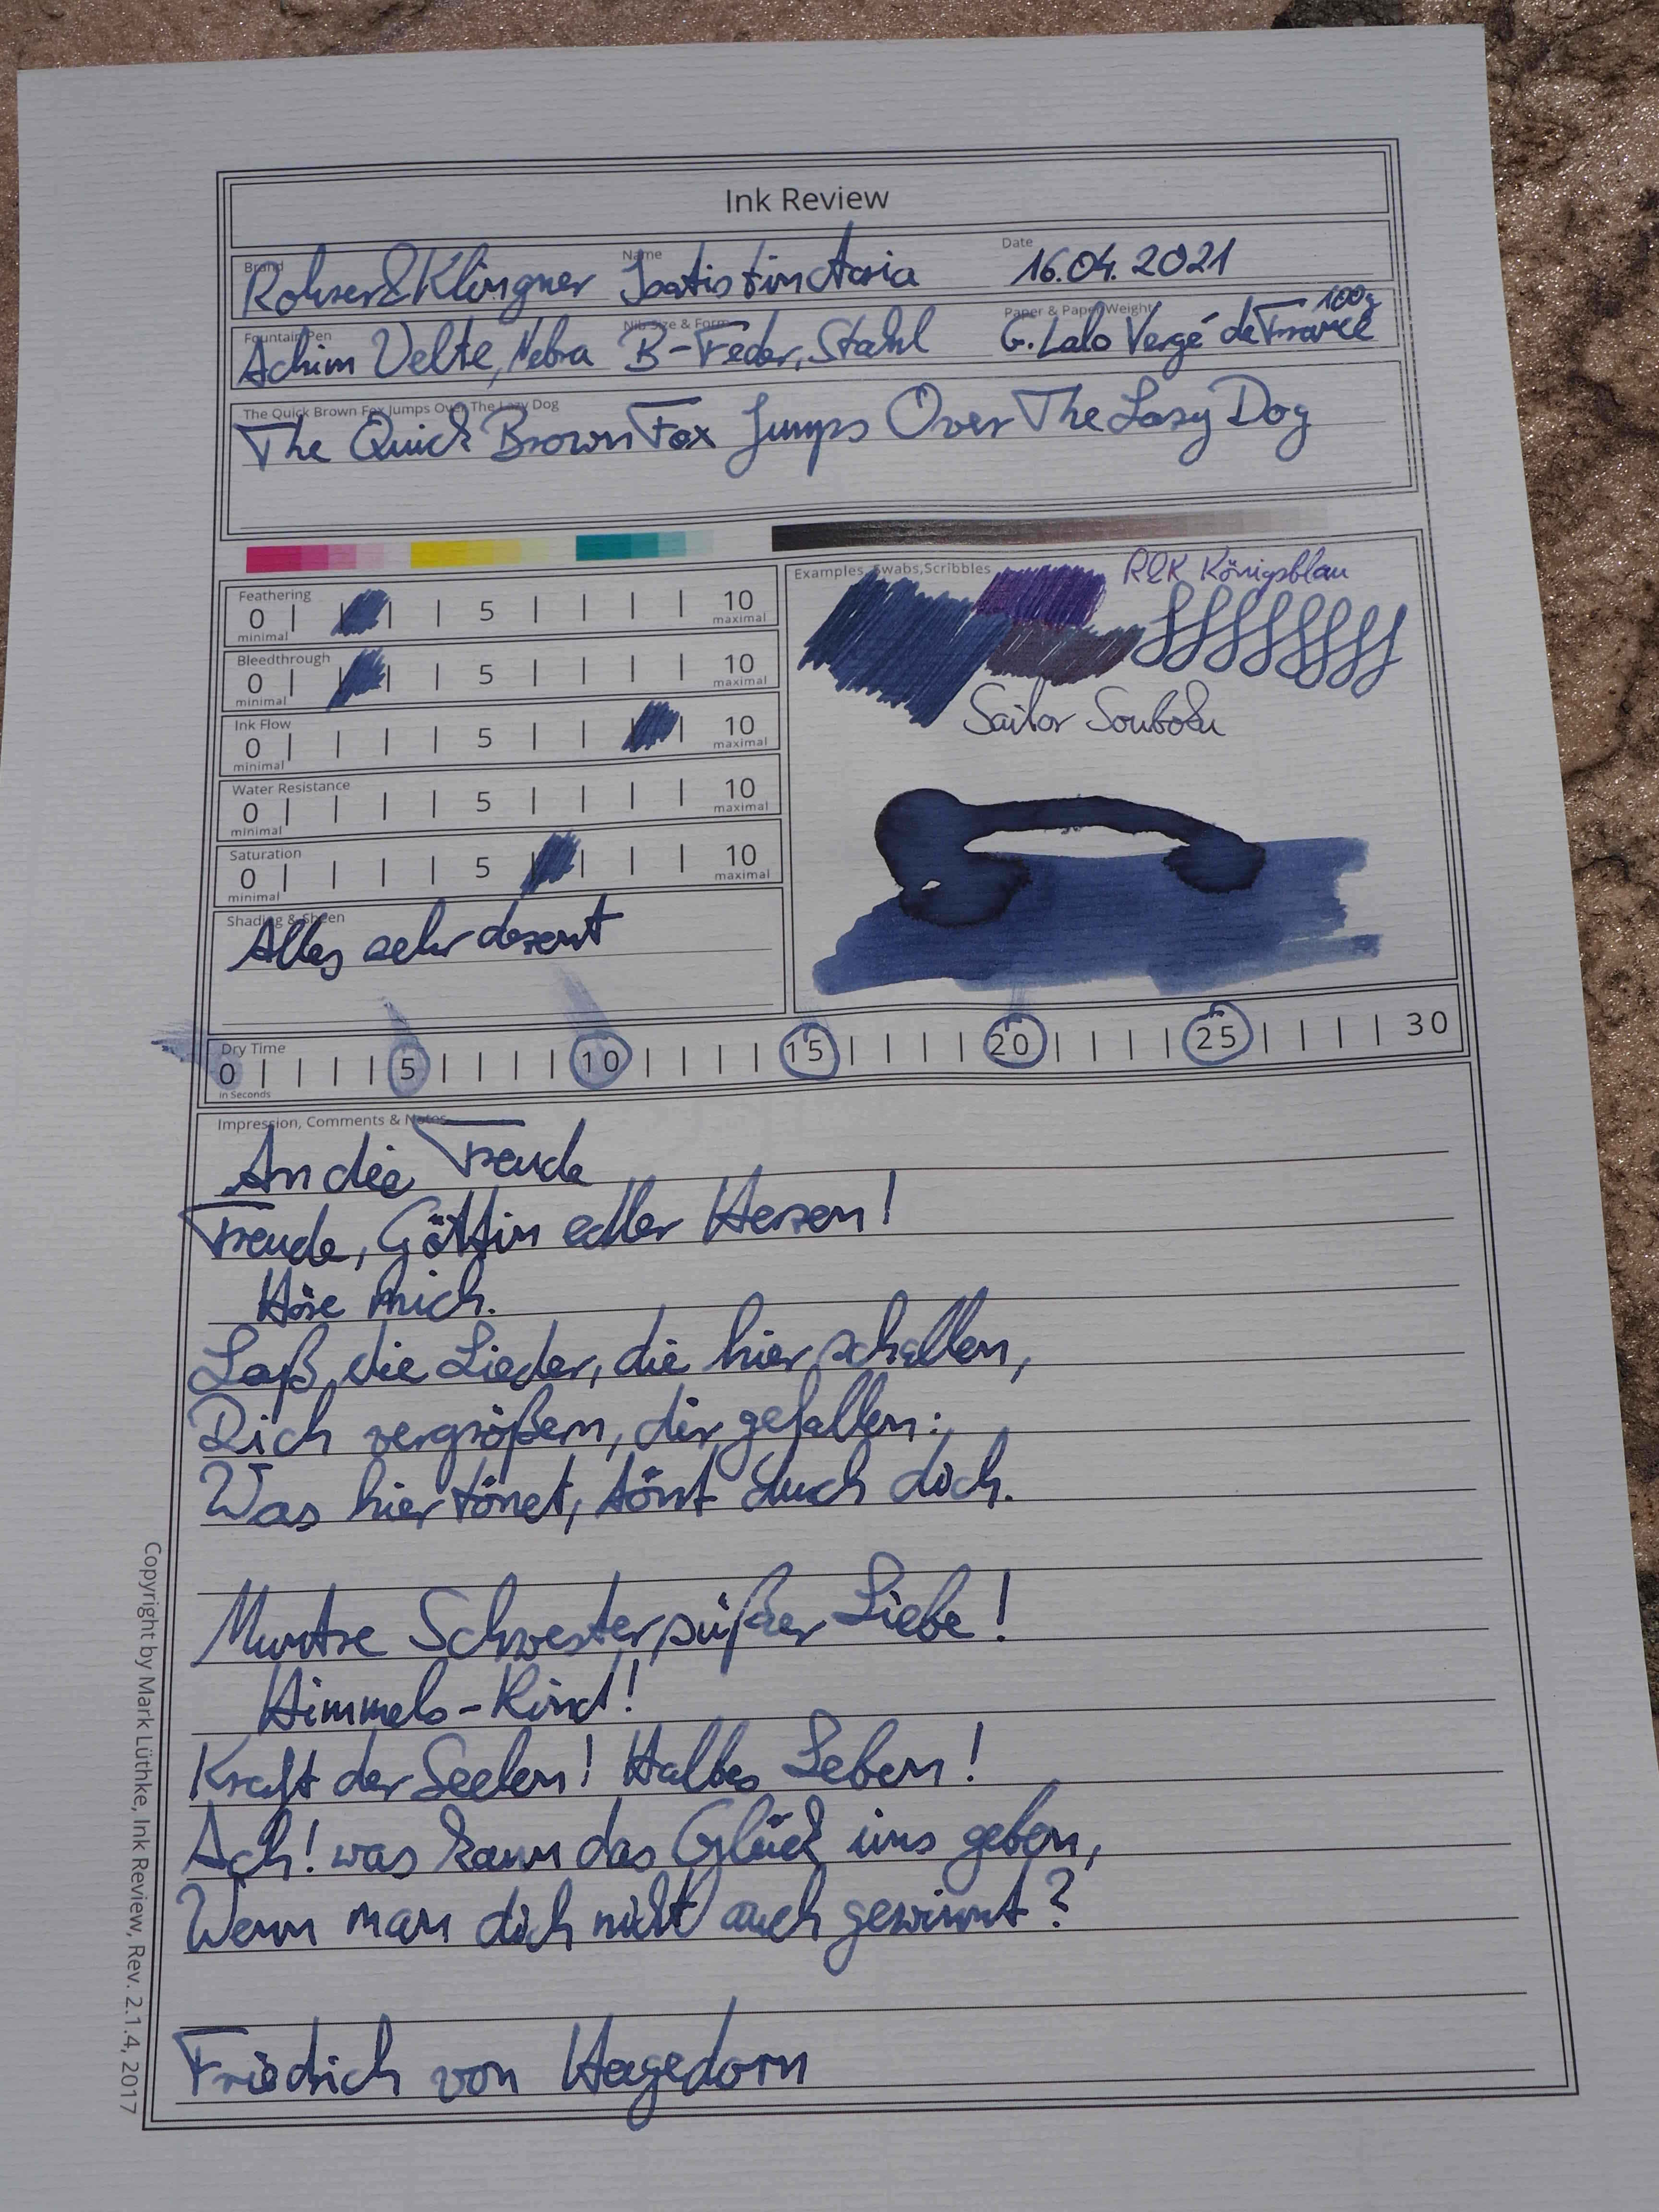 Ink Review
Brand Name Date
Rohrer & Klingner Isatis tinctoria 16.04.2021
Fountain Pen Nib Size & Form Paper & Paper Weight
Achim Velte, Nebra B-Feder, Stahl G. Lalo Vergé de France 100g
The Quick Brown Fox Jumps Over The Lazy Dog
The Quick Brown Fox Jumps Over The Lazy Dog
Feathering
0 5 10
minimal maximal
Bleedthrough
0 5 10
minimal maximal
Ink Flow
0 5 10
minimal maximal
Water Resistance
0 5 10
minimal maximal
Saturation
0 5 10
minimal maximal
Shading & Sheen
Alles sehr dezent
Examples, Swabs, Scribbles
R&K Königsblau
Sailor Souboku
Dry Time
0 5 10 15 20 25 30
in Seconds
Impression, Comments & Notes
An die Freude
Freude, Göttin edler Herzen!
Höre mich.
Laß die Lieder, die hier schallen,
Dich vergrößern, dir gefallen:
Was hier tönet, tönt durch dich.
Muntre Schwester süßer Liebe!
Himmels-Kind!
Kraft der Seelen! Halbes Leben!
Ach! was kann das Glück uns geben,
Wenn man dich nicht auch gewinnt?
Friedrich von Hagedorn
Copyright by Mark Lüthke, Ink Review, Rev. 2.1.4, 2017